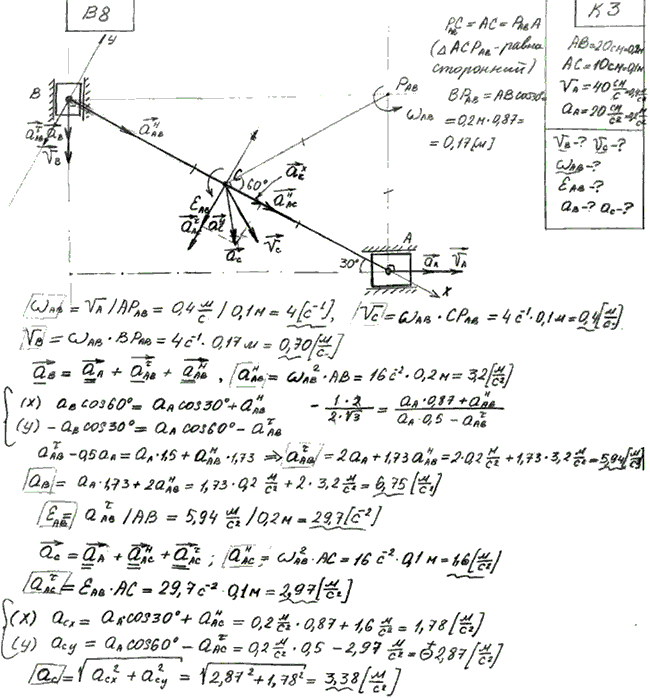 B8
К3
y
B
P_AC = AC = P_AB A
(△ACP_AB - равно
сторонний)
BP_AB = AB cos30°
= 0,2м · 0,87 =
= 0,17 [м]
AB = 20см = 0,2м
AC = 10см = 0,1м
V_A = 40 см/с = 0,4 м/с
a_A = 20 см/с² = 0,2 м/с²
V_B - ? V_C - ?
ω_AB - ?
ε_AB - ?
a_B - ? a_C - ?
P_AB
ω_AB
a^н_AB
a^τ_AB
a_B
V_B
C
60°
a^н_AC
ε_AB
a_C
V_C
A
30°
a_A
V_A
x
ω_AB = V_A / AP_AB = 0,4 м/с / 0,1м = 4 [с⁻¹], V_C = ω_AB · CP_AB = 4с⁻¹ · 0,1м = 0,4 [м/с]
V_B = ω_AB · BP_AB = 4с⁻¹ · 0,17м = 0,70 [м/с]
a_B = a_A + a^τ_AB + a^н_AB, a^н_AB = ω_AB² · AB = 16с⁻² · 0,2м = 3,2 [м/с²]
(x) a_B cos60° = a_A cos30° + a^н_AB - 1·2/2·√3 = a_A · 0,87 + a^н_AB / a_A · 0,5 - a^τ_AB
(y) - a_B cos30° = a_A cos60° - a^τ_AB
a^τ_AB - 0,5a_A = a_A · 1,5 + a^н_AB · 1,73 ⇒ a^τ_AB = 2a_A + 1,73a^н_AB = 2·0,2 м/с² + 1,73 · 3,2 м/с² = 5,94 [м/с²]
a_B = a_A · 1,73 + 2a^н_AB = 1,73 · 0,2 м/с² + 2 · 3,2 м/с² = 6,75 [м/с²]
ε_AB = a^τ_AB / AB = 5,94 м/с² / 0,2м = 29,7 [с⁻²]
a_C = a_A + a^н_AC + a^τ_AC ; a^н_AC = ω_AB² · AC = 16 с⁻² · 0,1м = 1,6 [м/с²]
a^τ_AC = ε_AB · AC = 29,7с⁻² · 0,1м = 2,97 [м/с²]
(x) a_Cx = a_A cos30° + a^н_AC = 0,2 м/с² · 0,87 + 1,6 м/с² = 1,78 [м/с²]
(y) a_Cy = a_A cos60° - a^τ_AC = 0,2 м/с² · 0,5 - 2,97 м/с² = 2,87 [м/с²]
a_C = √a_Cx² + a_Cy² = √2,87² + 1,78² = 3,38 [м/с²]